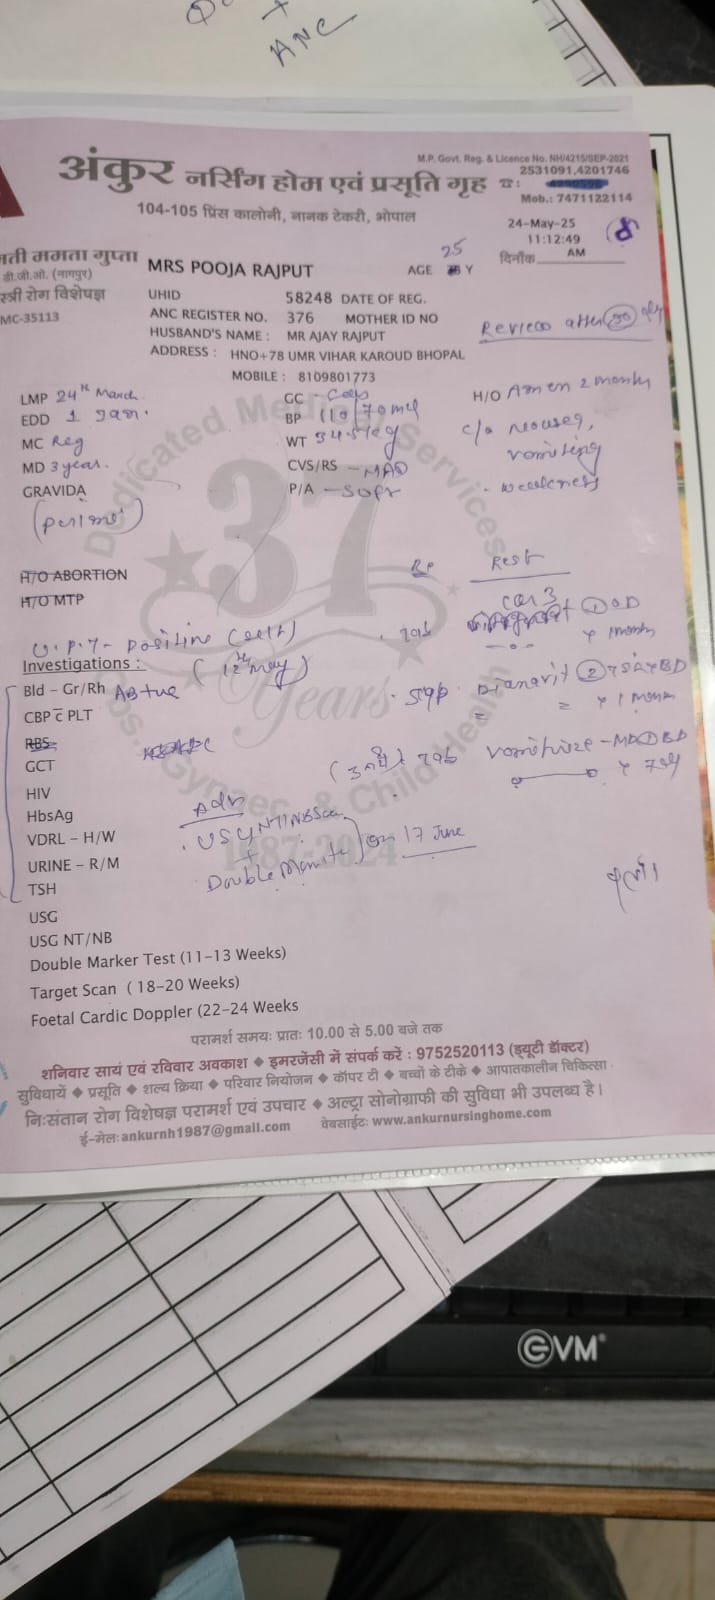 +
ANC
M.P. Govt. Reg. & Licence No. NH/4215/SEP-2021
अंकुर नर्सिंग होम एवं प्रसूति गृह
2531091,4201746
Mob.: 7471122114
104-105 प्रिंस कालोनी, नानक टेकरी, भोपाल
24-May-25
11:12:49
AM
दिनाँक
8
मती ममता गुप्ता
डी.जी.ओ. (नागपुर)
स्त्री रोग विशेषज्ञ
MC-35113
MRS POOJA RAJPUT
AGE 25 Y
UHID 58248 DATE OF REG.
ANC REGISTER NO. 376 MOTHER ID NO
HUSBAND'S NAME : MR AJAY RAJPUT
ADDRESS : HNO+78 UMR VIHAR KAROUD BHOPAL
MOBILE : 8109801773
Review after 30
LMP 24th March
EDD 1 Jan.
MC Reg
MD 3 year.
GRAVIDA
(primi)
GC -
BP 110/70
WT
CVS/RS - NAD
P/A - Soft
H/O Amen 2 months
c/o nausea,
vomiting
- weakness
H/O ABORTION
H/O MTP
Rx
Rest
OD
x 1 month
U.P.T - Positive (self)
(12th May)
Investigations :
Bld - Gr/Rh AB+ve
CBP c̄ PLT
RBS
GCT
HIV
HbsAg
VDRL - H/W
URINE - R/M
TSH
USG
USG NT/NB
Double Marker Test (11-13 Weeks)
Target Scan ( 18-20 Weeks)
Foetal Cardic Doppler (22-24 Weeks
Syp. Dianavit 2 TSF BD
x 1 month
Tab - MD 1 BD
x 7
Adv
. USG NT/NB Scan
+
Double Marker
on 17 June
Dedicated Medical Services
37
Years
Obs., Gynaec & Child Health
1987-2024
परामर्श समयः प्रातः 10.00 से 5.00 बजे तक
शनिवार सायं एवं रविवार अवकाश ◆ इमरजेंसी में संपर्क करें : 9752520113 (ड्यूटी डॉक्टर)
सुविधायें ◆ प्रसूति ◆ शल्य क्रिया ◆ परिवार नियोजन ◆ कॉपर टी ◆ बच्चों के टीके ◆ आपातकालीन चिकित्सा
निःसंतान रोग विशेषज्ञ परामर्श एवं उपचार ◆ अल्ट्रा सोनोग्राफी की सुविधा भी उपलब्ध है।
ई-मेलः ankurnh1987@gmail.com वेबसाईटः www.ankurnursinghome.com
EVM